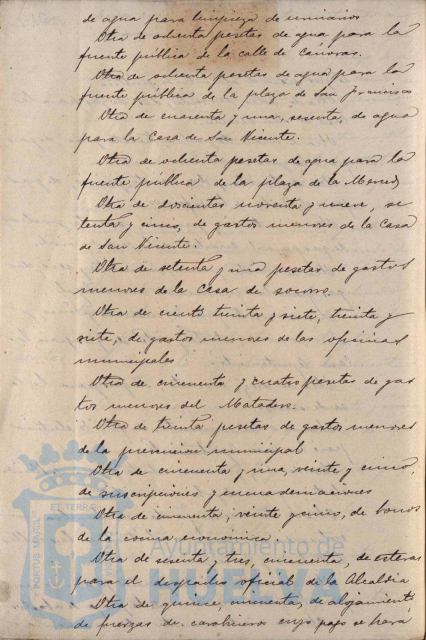 de agua para limpieza de urinarios
Otra de ochenta pesetas de agua para la
fuente pública de la calle de Cánovas.
Otra de ochenta pesetas de agua para la
fuente pública de la plaza de San Francisco
Otra de cuarenta y una, sesenta, de agua
para la Casa de San Vicente.
Otra de ochenta pesetas de agua para la
fuente pública de la plaza de la Merced
Otra de doscientas noventa y nueve, se
tenta y cinco, de gastos menores de la Casa
de San Vicente
Otra de setenta y una pesetas de gastos
menores de la Casa de socorro.
Otra de ciento treinta y siete, treinta y
siete, de gastos menores de las oficinas
municipales
Otra de cincuenta y cuatro pesetas de gas
tos menores del Matadero.
Otra de treinta pesetas de gastos menores
de la prevención municipal
Otra de cincuenta y una, veinte y cinco,
de suscripciones y encuadernaciones
Otra de cincuenta, veinte y cinco, de bonos
de la cocina económica.
Otra de sesenta y tres, cincuenta, de esteras
para el despacho oficial de la Alcaldía
Otra de quince, cincuenta, de alojamiento
de fuerzas de carabineros cuyo pago se hará
PORTUS MARIS
ET TERRAE
Ayuntamiento de
HUELVA